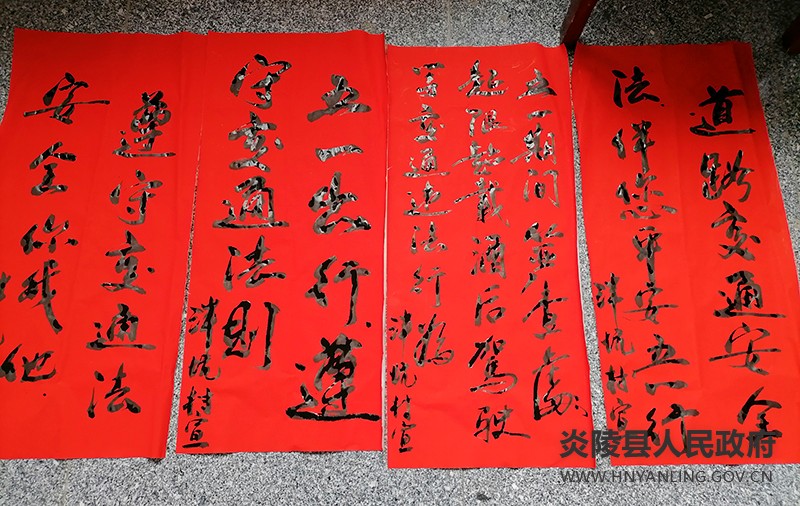 道路交通安全
法伴您平安五一行
坑村宣
五一期间严查处
超限超载酒后驾驶
等交通违法行为
坑村宣
五一出行遵
守交通法则
坑村宣
遵守交通法
安全你我他
炎陵县人民政府
WWW.HNYANLING.GOV.CN